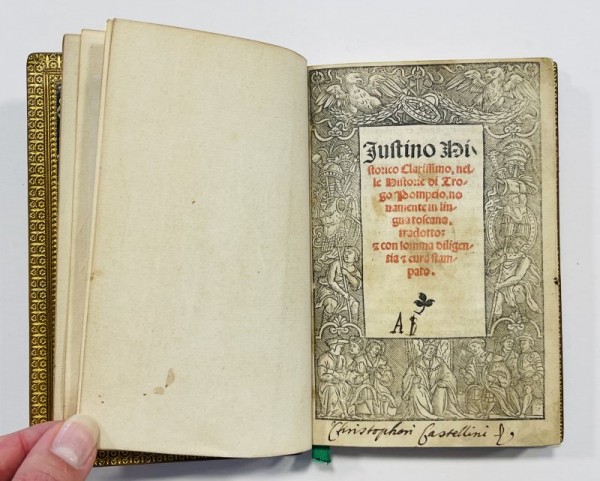 Justino Hi-
storico Clarissimo, nel-
le Historie di Tro-
go Pompeio, no
uamente in lin
gua toscana
tradotto:
⁊ con somma diligen-
tia ⁊ cura stam-
pato.
Christophori Castellini